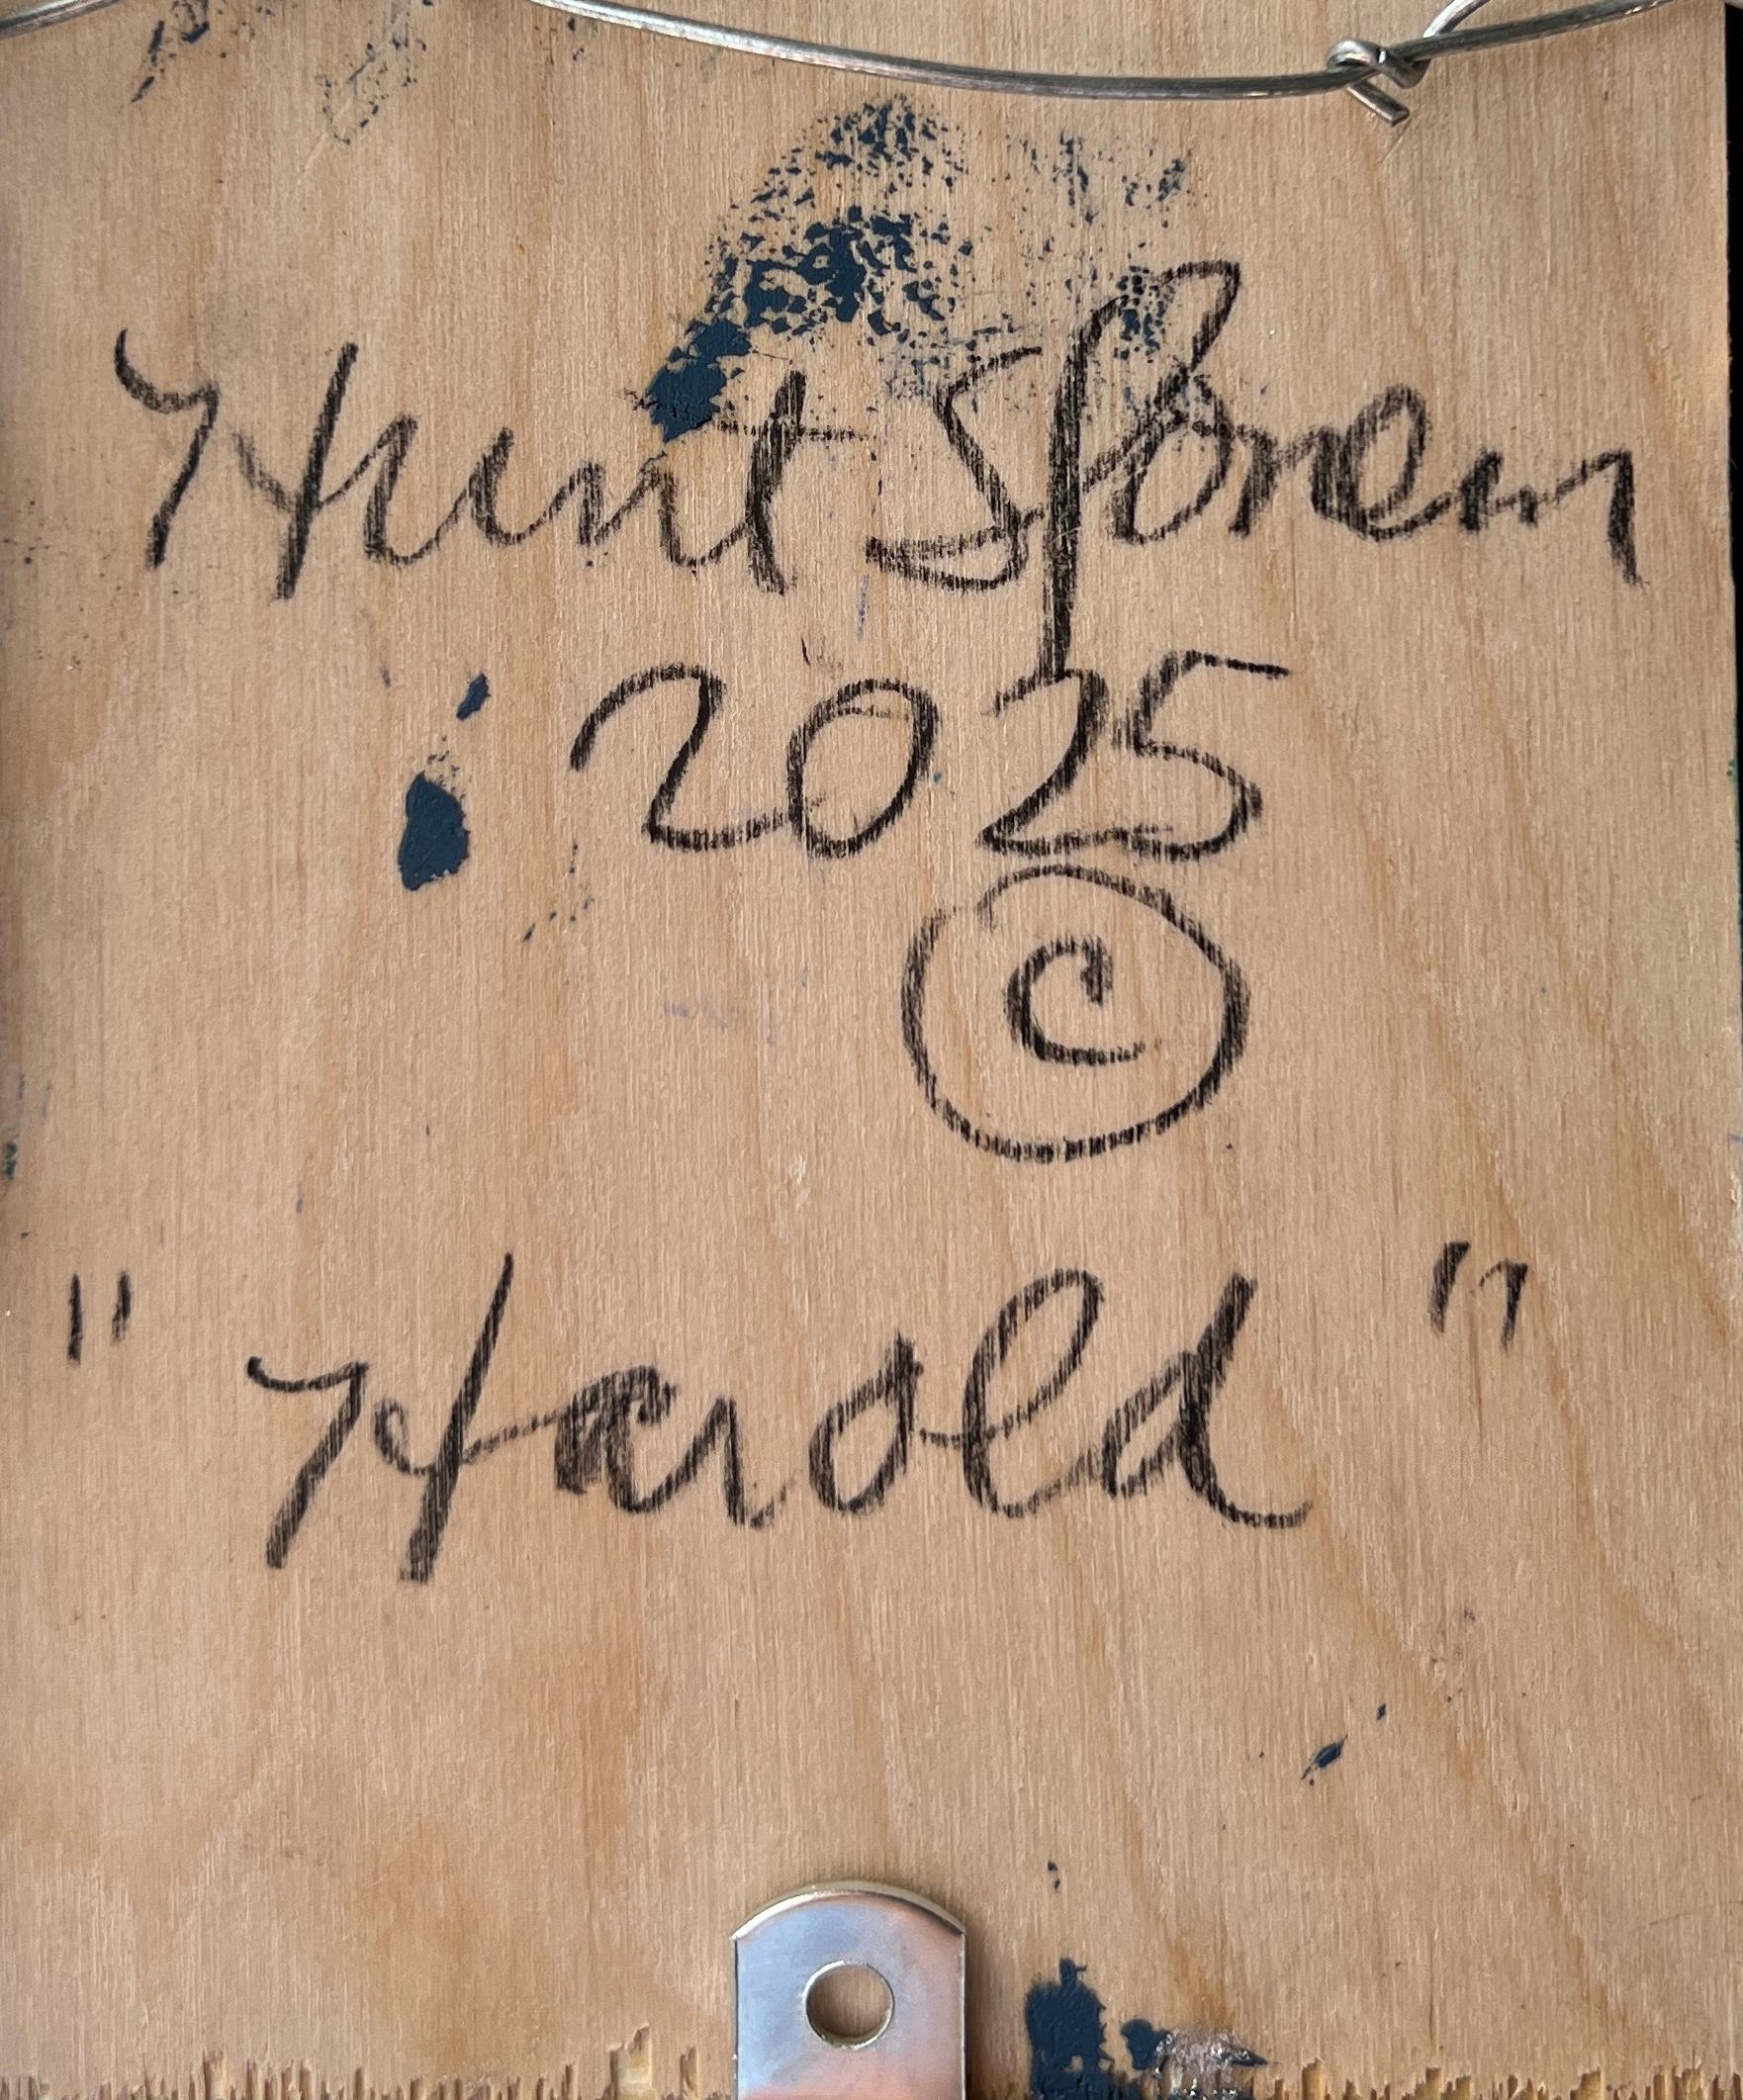 Hunt Slonem
2025
©
"Harold"